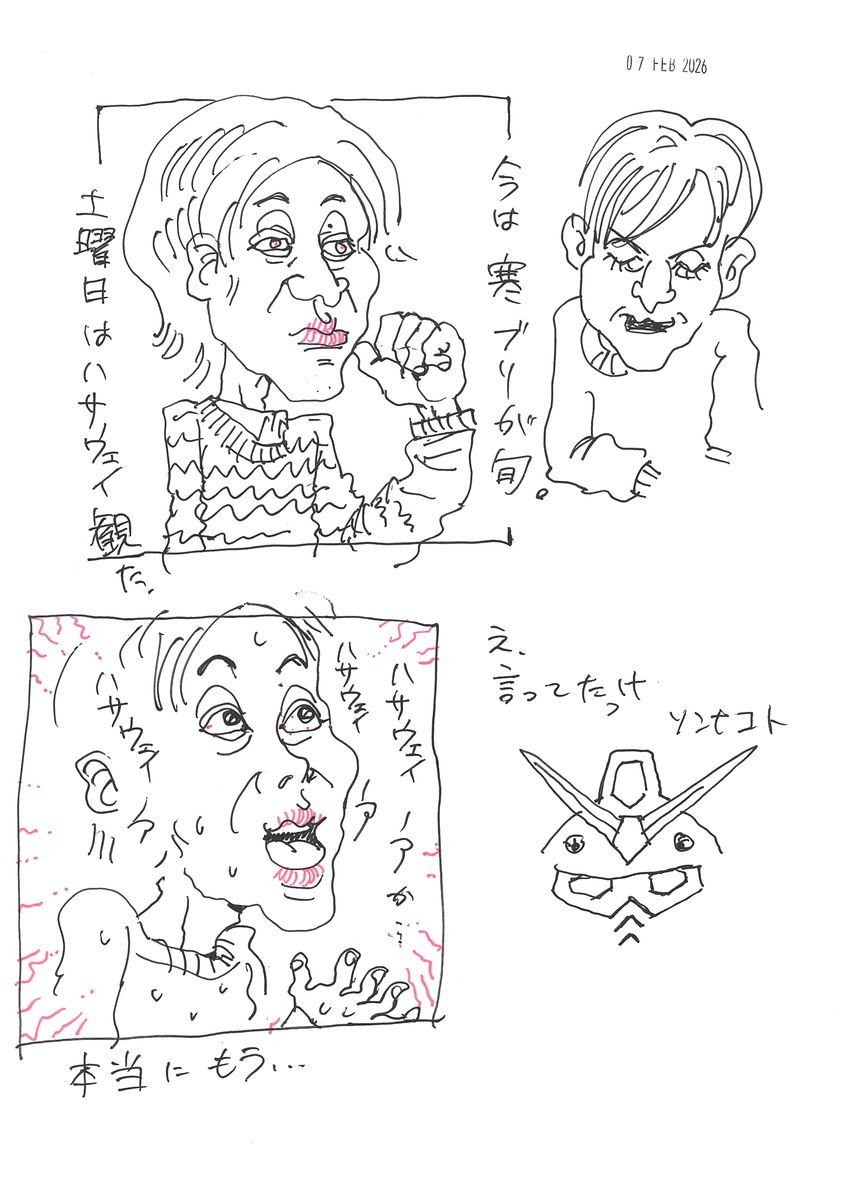 07 FEB 2026
今は寒ブリが旬。
土曜日はハサウェイ観た。
ハサウェイノアか…
ハサウェイノア
ハサウェイノア
え、
言ってたっけ
ソンナコト
本当にもう...